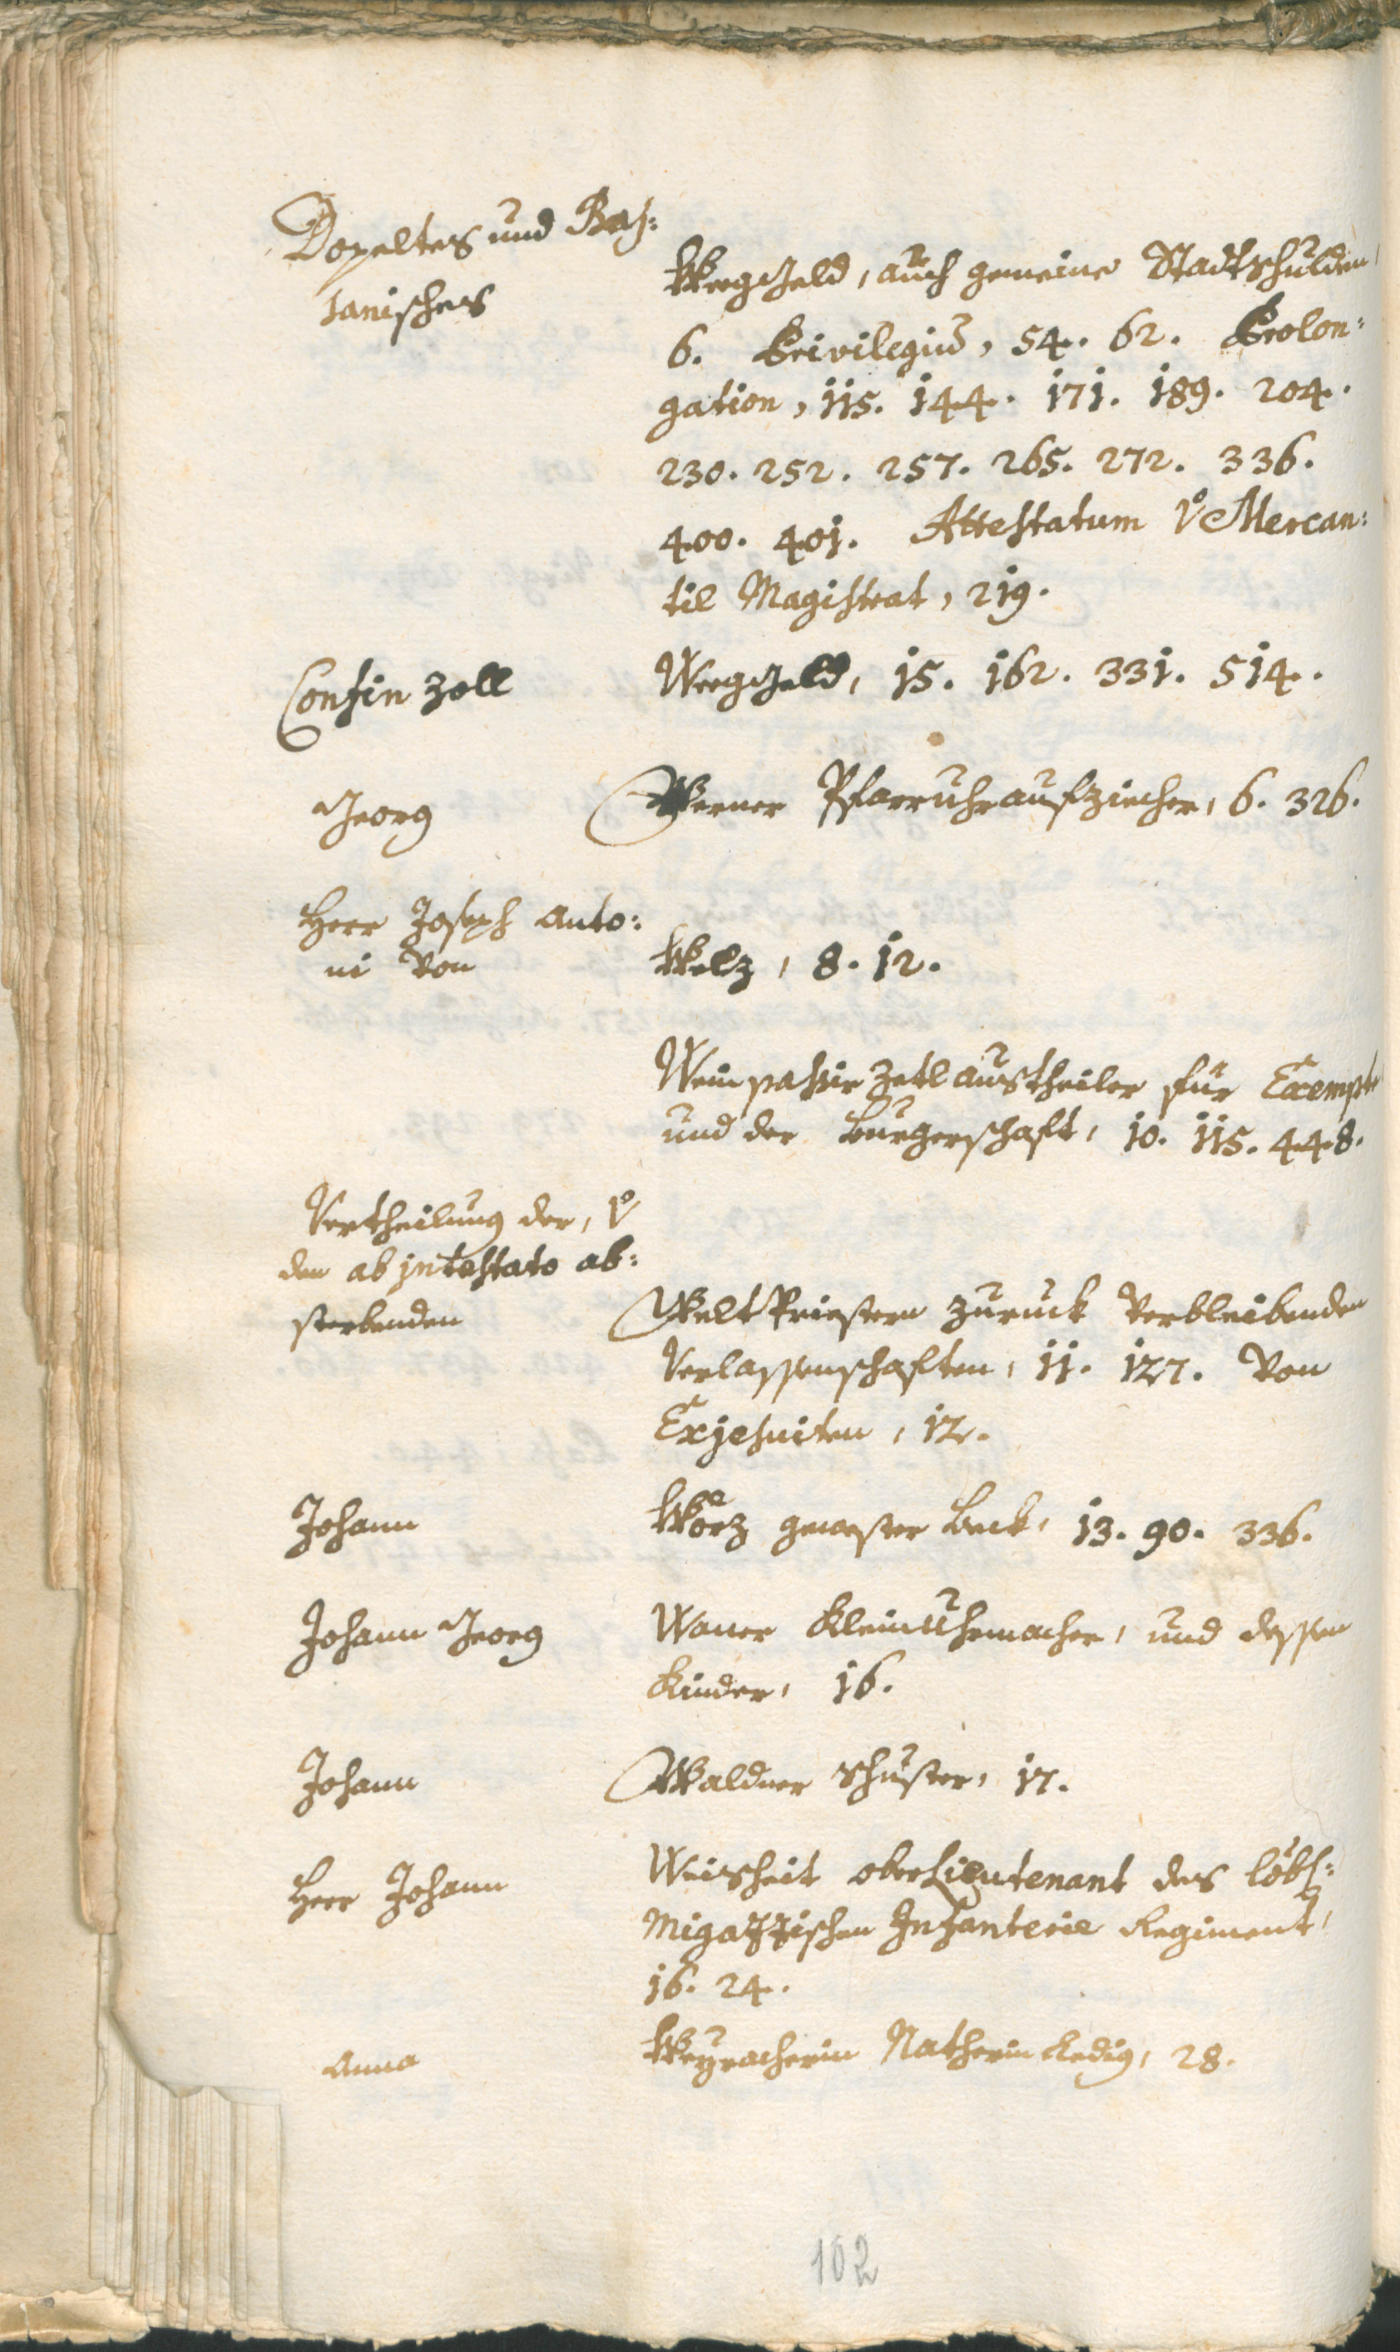 Dopeltes und Bas:
sanisches
Weeg Geld, auch gemeine Stadtschulden,
6. Privilegium, 54. 62. Prolon:
gation, 115. 144. 171. 189. 204.
230. 252. 257. 265. 272. 336.
400. 401. Attestatum Vo Mercan:
til Magistrat, 219.
Confin Zoll
Weeg Geld, 15. 162. 331. 514.
Georg
Werner Pfarruhraufziecher, 6. 326.
Herr Joseph Anto:
ni Von
Welz, 8. 12.
Weinpassir Zetlaustheiler für Exempte
und der Burgerschaft, 10. 115. 448.
Vertheilung der, Vo
den ab intestato ab:
sterbenden
Welt Priestern zuruck Verbleibenden
Verlassenschaften, 11. 127. Von
Exjesuiten, 12.
Johann
Wörz gewester Beck, 13. 90. 336.
Johann Georg
Waner Kleinuhrmacher, und dessen
Kinder, 16.
Johann
Waldner Schuster, 17.
Herr Johann
Weisheit oberLieutenant des löbl:
Migazzischen Infanterie Regiment,
16. 24.
Anna
Weyracherin Natherin Ledig, 28.
102